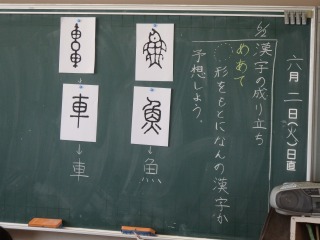 六月二日(火)日直
6/2
漢字の成り立ち
めあて
形をもとになんの漢字か
予想しよう。
魚
魚
車
車